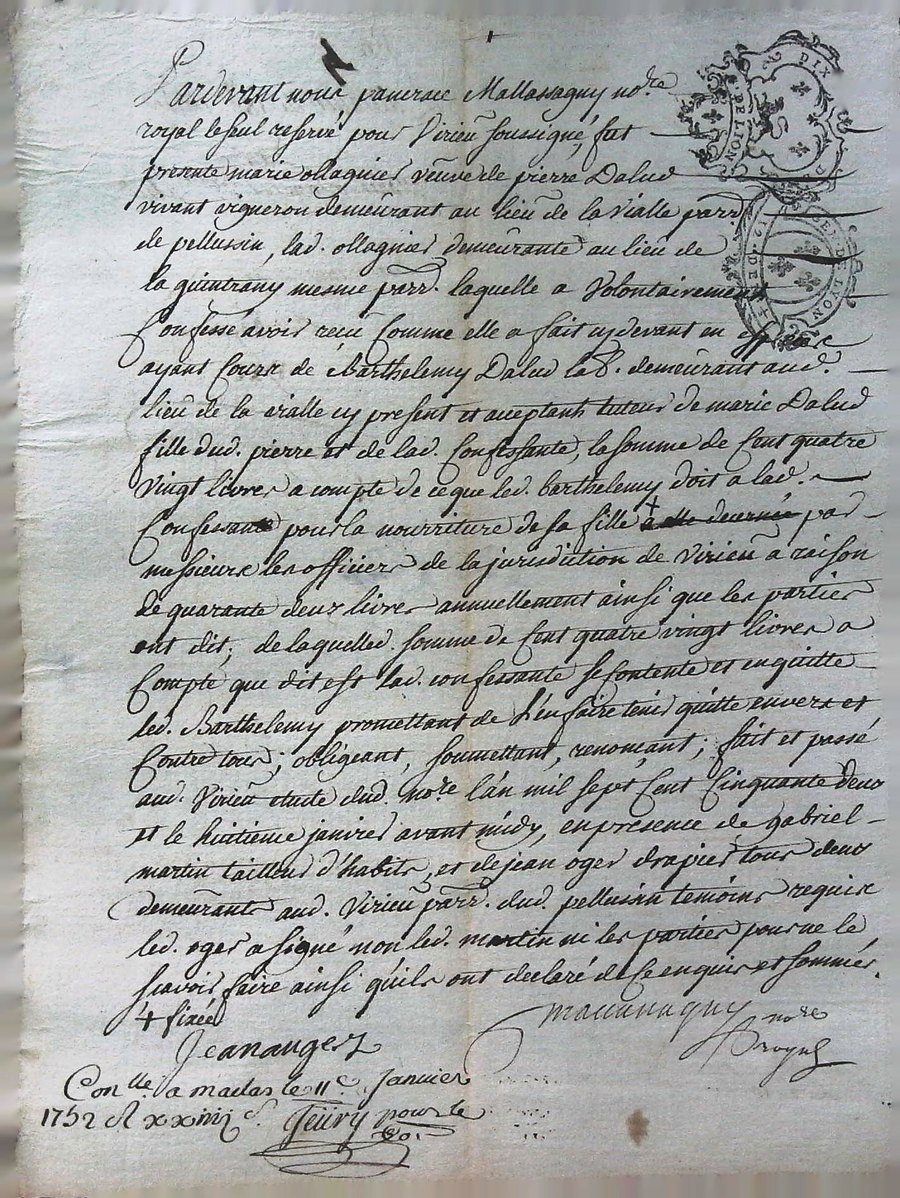 Pardevant nous pancrace Mallassagny no.re
royal le seul reservé pour Virieu soussigné, fut
presente marie ollagnier veuve de pierre Dalud
vivant vigneron demeurant au lieu de la vialle parr.
de pellussin, lad. ollagnier demeurante au lieu de
la guintrany mesme parr. laquelle a Volontairement
Confessé avoir recu Comme elle a fait cy devant en
ayant Cours de Barthelemy Dalud lab. demeurant aud.
lieu de la vialle cy present et acceptant tuteur de marie Dalud
fille dud. pierre et de lad. Confessante, la somme de Cent quatre
Vingt livres a compte de ce que led. barthelemy doit a lad.
Confessante pour la nourriture de sa fille + par
messieurs les officiers de la jurisdiction de Virieu a raison
de quarante deux livres annuellement ainsi que les parties
ont dit; de laquelled. somme de Cent quatre vingt livres a
Compte que dit est lad. confessante se contente et en quitte
led. Barthelemy promettant de l'en faire tenir quitte envers et
Contre tous; obligeant, soumettant, renonçant; fait et passé
aud. Virieu etude dud. no.re l'an mil sept Cent Cinquante deux
et le huitieme janvier avant midy, en presence de gabriel
martin tailleur d'habits, et de jean oger drapier tous deux
demeurants aud. Virieu parr. dud. pellussin temoins requis
led. oger a signé non led. martin ni les parties pour ne le
scavoir faire ainsi qu'ils ont declaré de ce enquis et sommés.
+ fixée
no.re
Jean auger royal
Con.lle a maclas le 11.e Janvier
1752 R xxiiij s. pour le
DIX
DE LION
GEN. DE LION